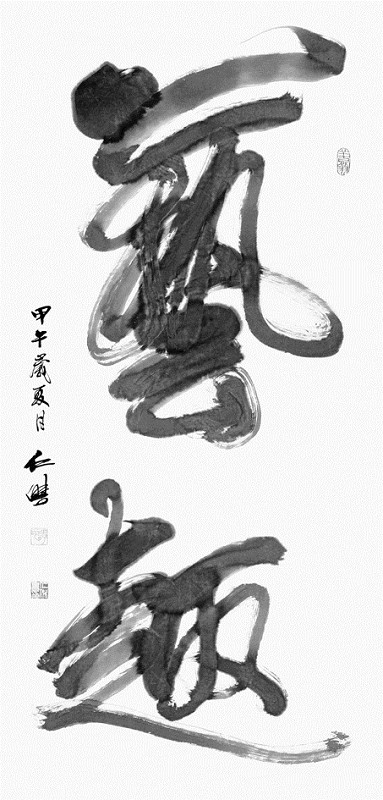 藝趣
甲午歲夏月
仁